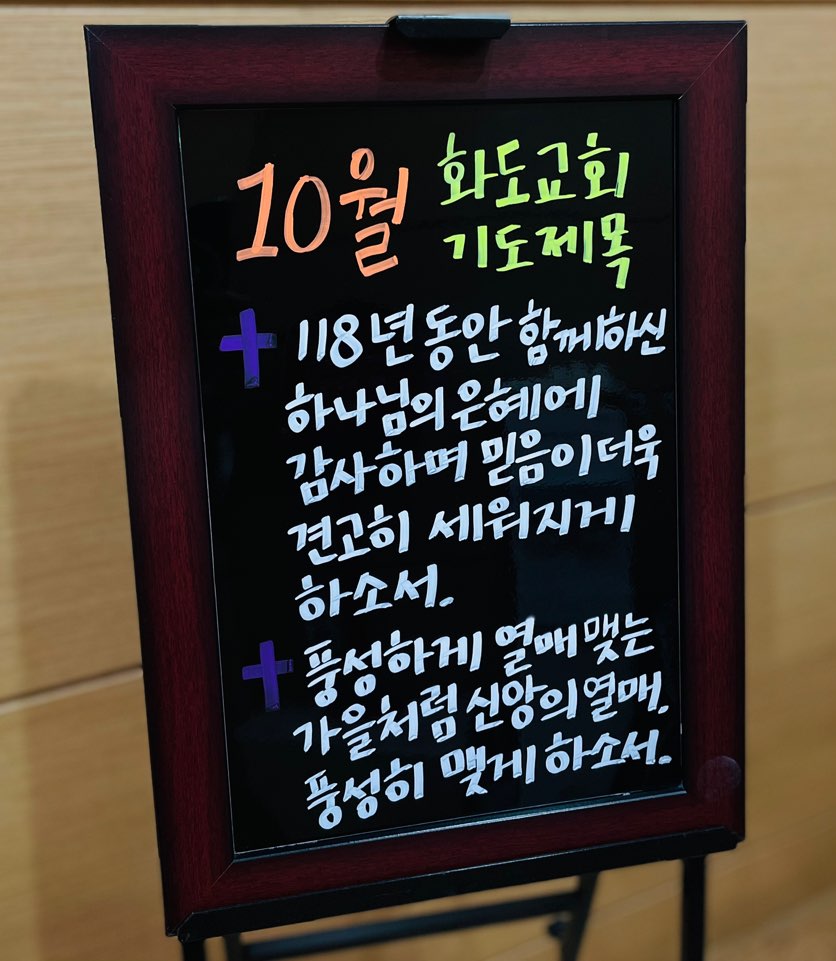 10월 화도교회
기도제목
118년 동안 함께하신
하나님의 은혜에
감사하며 믿음이 더욱
견고히 세워지게
하소서.
풍성하게 열매 맺는
가을처럼 신앙의 열매.
풍성히 맺게 하소서.